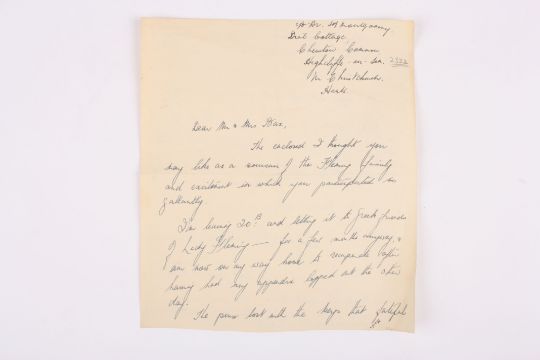 c/o Dr. Montgomery,
Cottage,
Chewton Common
Highcliffe-on-sea.
Nr Christchurch.
Hants.
Dear Mr & Mrs
The enclosed I thought you
may like as a souvenir of the Fleming
and excitement in which you participated so
gallantly.
I'm leaving 20B and letting it to Greek friends
of Lady Fleming — for a few months anyway, &
am now on my way home to recuperate after
having had my appendix lopped out the other
day.
The press lost with the keys that fateful